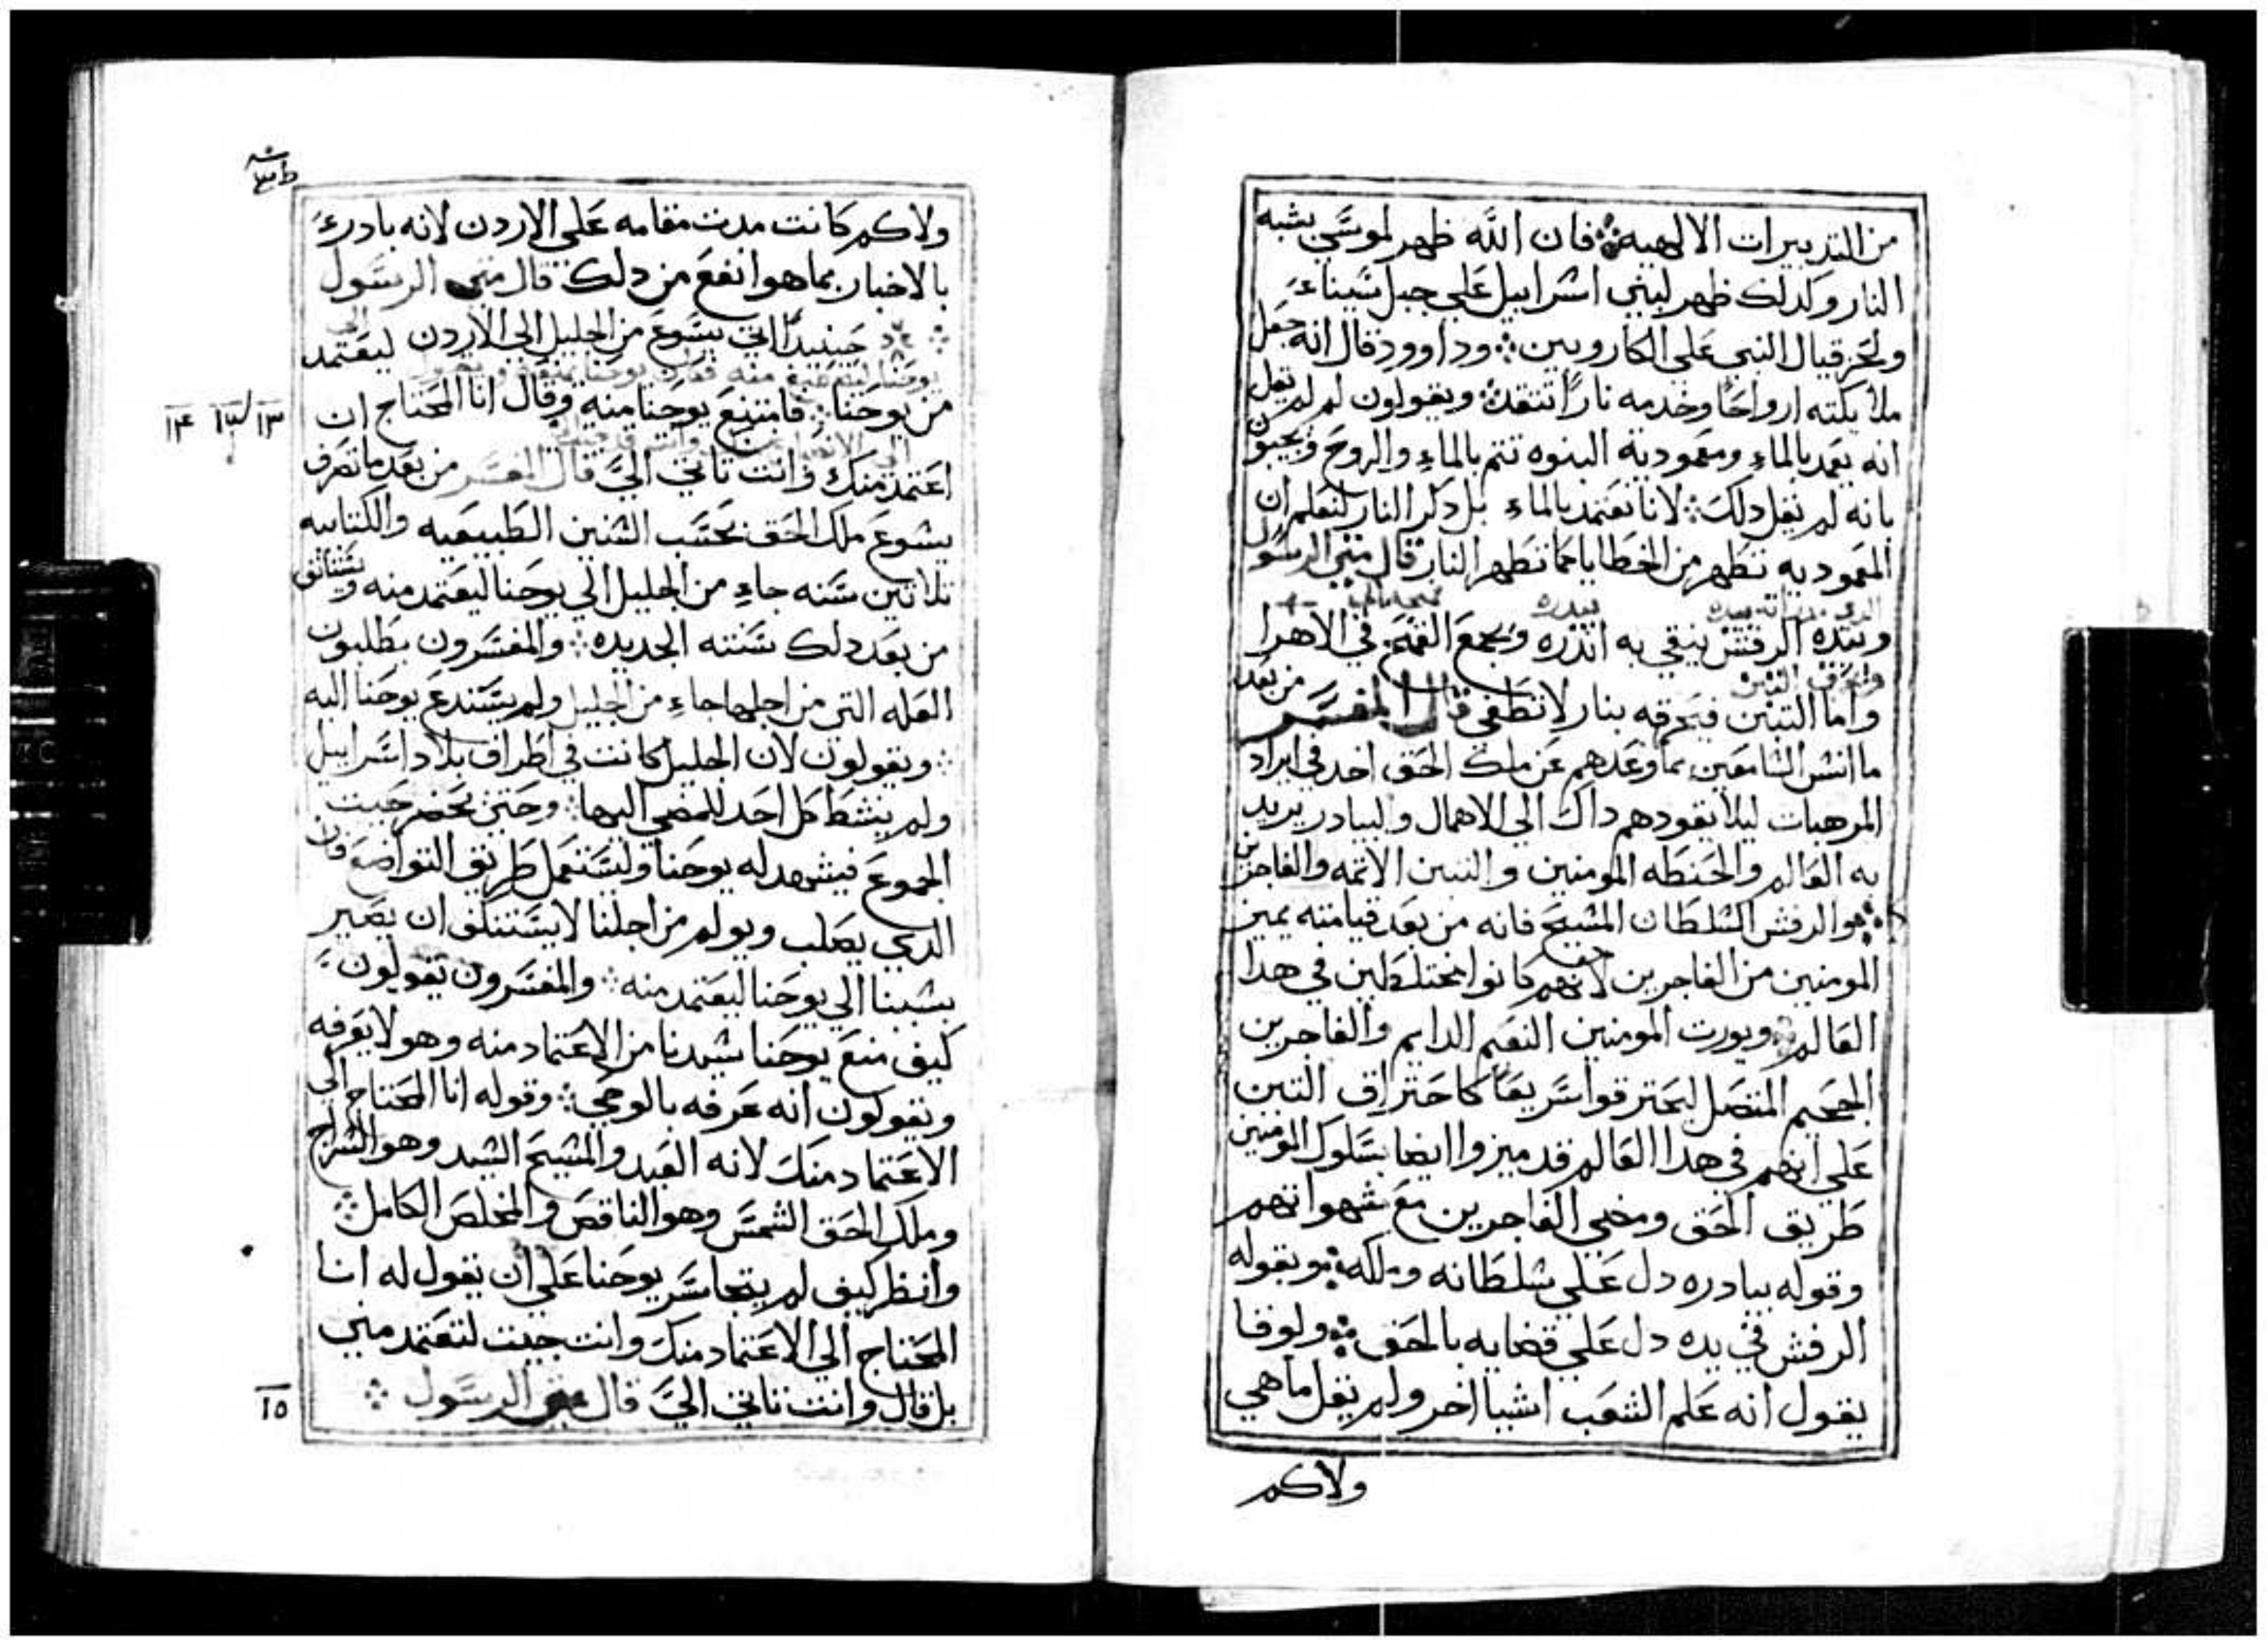 من التدبيرات الالهيه فان الله ظهر لموسي بشبه
النار ولدلك ظهر لبني اسراييل علي جبل سيناء
ولحزقيال النبي علي الكاروبين وداوود قال انه جعل
ملايكته ارواحًا وخدمه نارًا تتقد ويقولون لم لم يقل
انه يعمد بالماء ومعموديه البنوه تتم بالماء والروح ويجيبون
بانه لم يقل دلك لانا نعتمد بالماء بل دكر النار لنعلم ان
المعموديه تطهر من الخطايا كما تطهر النار قال متي الرسول
وبيده الرفش ينقي به اندره ويجمع القمح في الاهرا
واما التبن فيحرقه بنار لا تطفي قال المفسر من بعد
ما انس السامعين بما وعدهم عن ملك الحق اخد في ايراد
المرهبات ليلا يقودهم داك الي الاهمال والبيادر يريد
به العالم والحنطه المومنين والتبن الاتمه والفاجرين
والرفش السلطان المسيح فانه من بعد قيامته يميز
المومنين من الفاجرين لانهم كانوا مختلطين في هدا
العالم ويورت المومنين النعيم الدايم والفاجرين
الجحيم المتصل ليحترقوا سريعًا كاحتراق التبن
علي انهم في هدا العالم قد ميزوا ايضا بسلوك المومنين
طريق الحق ومضي الفاجرين مع شهواتهم
وقوله بيادره دل علي سلطانه وملكه وبقوله
الرفش في يده دل علي قضايه بالحق ولوقا
يقول انه علم الشعب اشيا اخر ولم يقل ما هي
ولاكم
ولاكم كانت مدت مقامه علي الاردن لانه بادرء
بالاخبار بما هو انفع من دلك قال متي الرسول
حينيدٍ اتي يسوع من الجليل الي الاردن الي ليعتمد
من يوحنا فامتنع يوحنا منه وقال انا المحتاج ان
١٣ ١٤
اعتمد منك وانت تاتي اليَّ قال المفسر من بعد ما تصرف
يسوع ملك الحق بحسب السنين الطبيعيه والكتابيه
تلاتين سنه جاء من الجليل الي يوحنا ليعتمد منه
من بعد دلك سنته الجديده والمفسرون يطلبون
العله التي من اجلها جاء من الجليل ولم يستدع يوحنا اليه
ويقولون لان الجليل كانت في اطراف بلاد اسراييل
ولم ينشط كل احد للمضي اليها وحتي يحضر حيت
الجموع فيشهد له يوحنا وليستعمل طريق التواضع فان
الدي يصلب ويولم من اجلنا لا يستنكف ان يصير
بسببنا الي يوحنا ليعتمد منه والمفسرون يقولون
كيف منع يوحنا سيدنا من الاعتماد منه وهو لا يعرفه
ويقولون انه عرفه بالوحي وقوله انا المحتاج الي
الاعتماد منك لانه العبد والمسيح السيد وهو السراج
وملك الحق الشمس وهو الناقص والمخلص الكامل
وانظر كيف لم يتجاسر يوحنا علي ان يقول له انا
المحتاج الي الاعتماد منك وانت جيت لتعتمد مني
بل قال وانت تاتي اليَّ قال متي الرسول
١٥